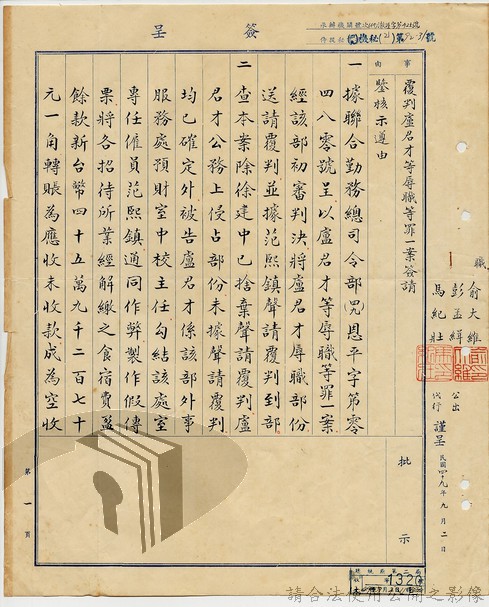 簽呈
事由
覆判盧君才等辱職等罪一案簽請
鑒核示遵由
一據聯合勤務總司令部(49)恩平字第零
四八零號呈以盧君才等辱職等罪一案
經該部初審判決將盧君才辱職部份
送請覆判並據范熙鎮聲請覆判到部
二查本案除徐建中已捨棄聲請覆判盧
君才公務上侵占部份未據聲請覆判
均已確定外被告盧君才係該部外事
服務處預財室中校主任勾結該處室
專任僱員范熙鎮通同作弊製作假傳
票將各招待所業經解繳之食宿費盈
餘款新台幣四十五萬九千二百七十
元一角轉賬為應收未收款成為空收
批示
職
俞大維
彭孟緝
馬紀壯
公出
代行
謹呈
民國四九年九月二日
第一頁
1320
請合法使用公開之影像